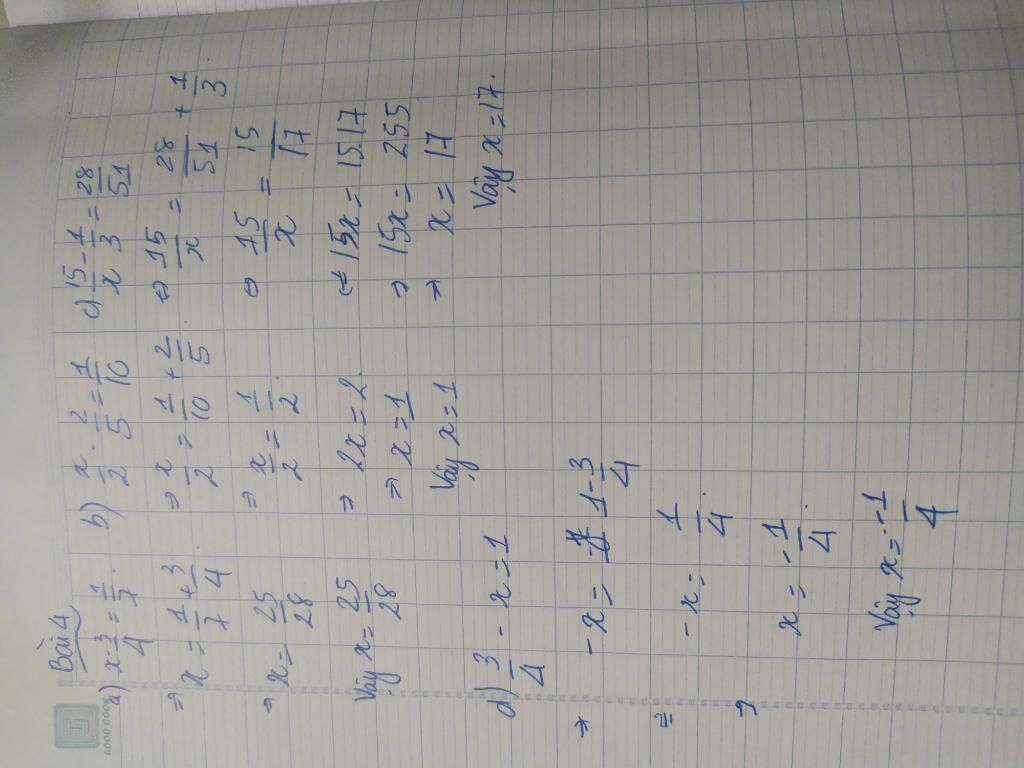 GOOD BOOK
Bài 4
a) x - 3/4 = 1/7.
⇒ x = 1/7 + 3/4
⇒ x = 25/28
Vậy x = 25/28
b) x/2 - 2/5 = 1/10
⇒ x/2 = 1/10 + 2/5
⇒ x/2 = 1/2.
⇒ 2x = 2.
⇒ x = 1
Vậy x = 1
c) 15/x - 1/3 = 28/51
⇔ 15/x = 28/51 + 1/3
⇔ 15/x = 15/17
⇔ 15x = 15.17
⇒ 15x = 255
⇒ x = 17
Vậy x = 17.
d) 3/4 - x = 1
⇒ -x = 1 - 3/4
⇒ -x = 1/4.
⇒ x = -1/4
Vậy x = -1/4